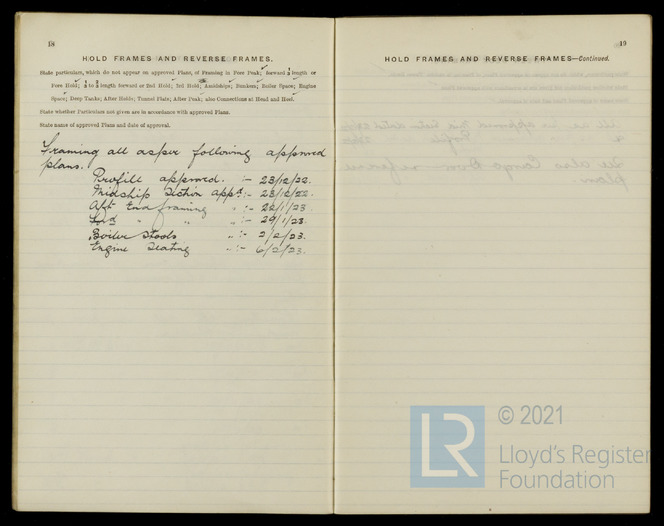 18
HOLD FRAMES AND REVERSE FRAMES.
State particulars, which do not appear on approved Plans, of Framing in Fore Peak; forward ½ length or
Fore Hold; ½ to ¾ length forward or 2nd Hold; 3rd Hold; Amidships; Bunkers; Boiler Space; Engine
Space; Deep Tanks; After Holds; Tunnel Flats; After Peak; also Connections at Head and Heel.
State whether Particulars not given are in accordance with approved Plans.
State name of approved Plans and date of approval.
Framing all as per following approved
plans.
Profile approved. :- 23/12/22.
Midship Section appd :- 23/12/22.
Aft End framing " :- 22/1/23.
Fwd " " " :- 29/1/23.
Boiler Stools " :- 2/2/23.
Engine Seating " :- 6/2/23.
19
HOLD FRAMES AND REVERSE FRAMES—Continued.
LR
© 2021
Lloyd's Register
Foundation